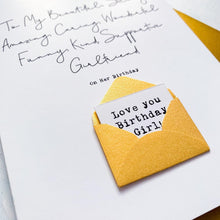 To My Beautiful
Amazing, Caring Wonderful
Funny, Kind Supportive
Girlfriend
On Her Birthday
Love you
Birthday
Girl!